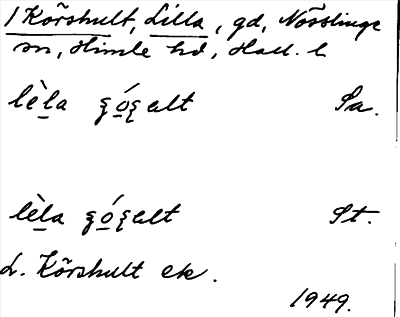 1 Körshult, Lilla, gd, Nösslinge
sn, Himle hd, Hall. l
lèla Sa.
lèla St.
L. Körshult ek.
1949.